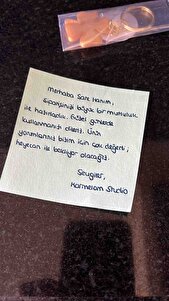 Merhaba Sare Hanım,
siparişinizi büyük bir mutluluk
ile hazırladık. Güzel günlerde
kullanmanızı dileriz. Ürün
yorumlarınız bizim için çok değerli,
heyecan ile bekliyor olacağız.
Sevgiler,
Karmelam Studio